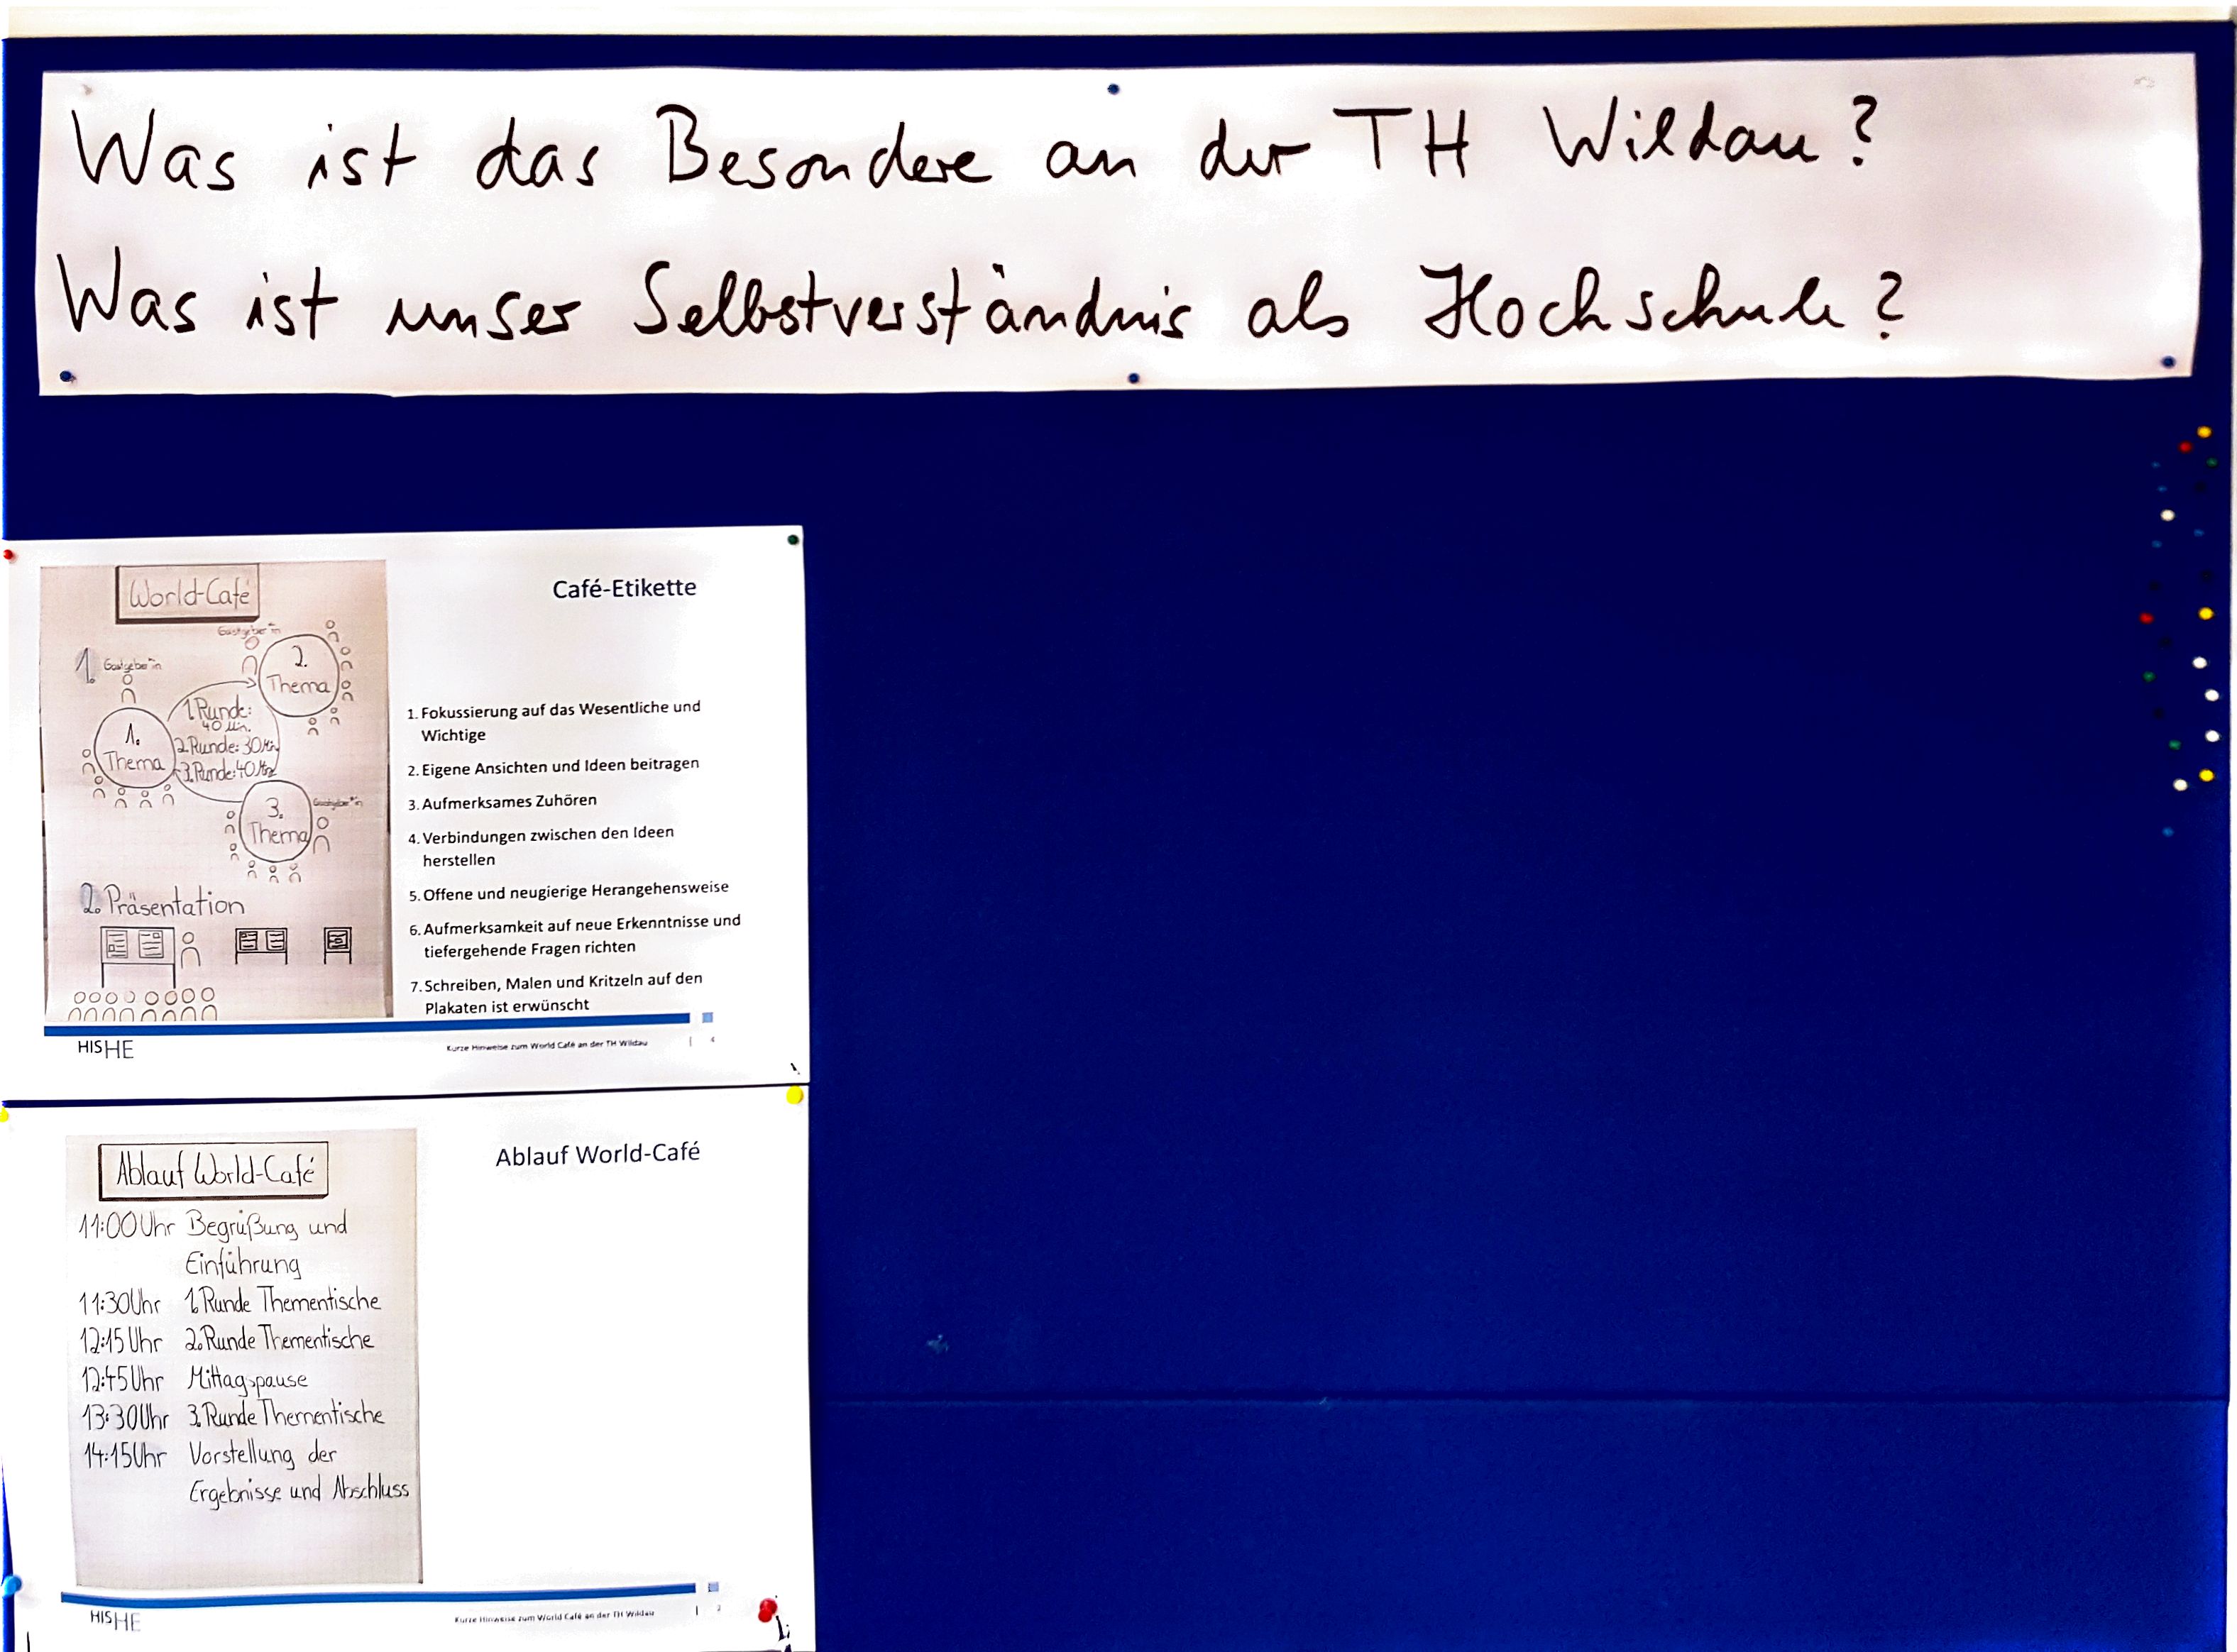 Was ist das Besondere an der TH Wildau?
Was ist unser Selbstverständnis als Hochschule?
World-Café
Gastgeber*in
1. Gastgeber*in
2.
Thema
1. Runde:
40 Min.
2. Runde: 30 Min.
3. Runde: 40 Min.
1.
Thema
3.
Thema
Gastgeber*in
2. Präsentation
Café-Etikette
1. Fokussierung auf das Wesentliche und
Wichtige
2. Eigene Ansichten und Ideen beitragen
3. Aufmerksames Zuhören
4. Verbindungen zwischen den Ideen
herstellen
5. Offene und neugierige Herangehensweise
6. Aufmerksamkeit auf neue Erkenntnisse und
tiefergehende Fragen richten
7. Schreiben, Malen und Kritzeln auf den
Plakaten ist erwünscht
HISHE
Kurze Hinweise zum World Café an der TH Wildau | 4
Ablauf World-Café
11:00 Uhr Begrüßung und
Einführung
11:30 Uhr 1. Runde Thementische
12:15 Uhr 2. Runde Thementische
12:45 Uhr Mittagspause
13:30 Uhr 3. Runde Thementische
14:15 Uhr Vorstellung der
Ergebnisse und Abschluss
Ablauf World-Café
HISHE
Kurze Hinweise zum World Café an der TH Wildau |